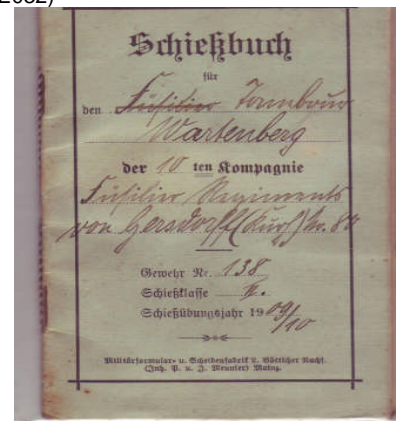 Schießbuch
für
den Füsilier Tambour
Wartenberg
der 10 ten Kompagnie
Füsilier Regiments
von Gersdorff (Kurh) Nr. 80
Gewehr Nr. 138
Schießklasse II.
Schießübungsjahr 1909/10
Militärformular- u. Scheibenfabrik L. Göttlicher Nachf.
(Inh. P. u. J. Meunier) Mainz.